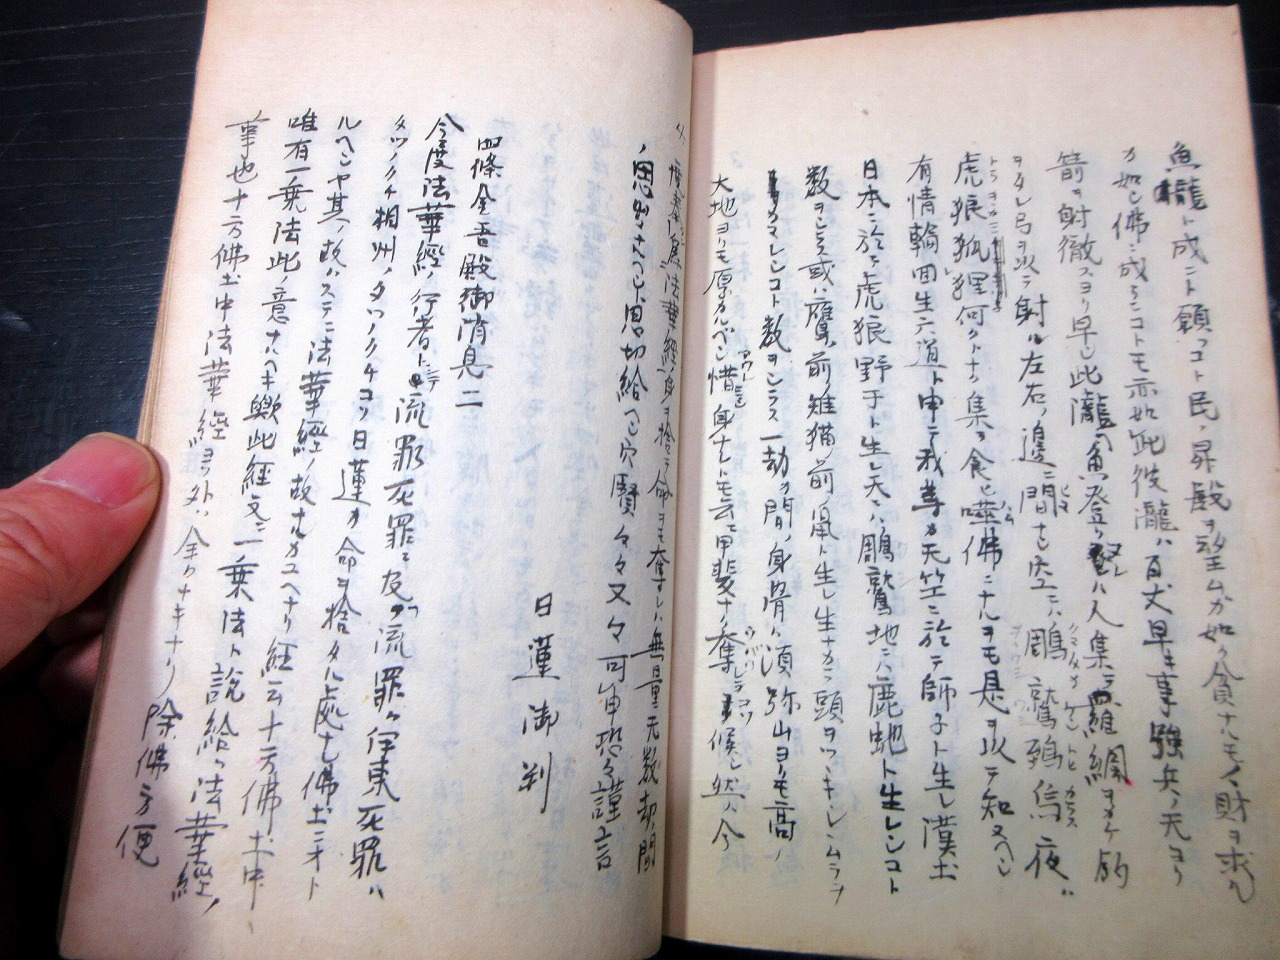 魚龍ト成ニト願フコト民ノ昇殿ヲ望ムガ如ク貧ナルモノ財ヲ求ル
カ如シ佛ニ成ランコトモ亦如此彼瀧ハ百丈早キ事強兵ノ天ヨリ
箭ヲ射徹スヨリ早シ此瀧ヘ魚登レハ人集テ羅網ヲカケ釣
ヲタレ弓ヲ以テ射ル左右ノ邊ニ間ナシ空ニハ鵰鷲鵄烏夜ハ
虎狼狐狸何クトナク集テ食ヒ佛ニナルヲモ是ヲ以テ知ヌヘシ
有情輪回生死六道ト申テ我等カ天竺ニ於テ師子ト生レ漢土
日本ニ於テ虎狼野干ト生レ天ニハ鵰鷲地ニハ鹿蛇ト生レシコト
数ヲシラス或ハ鷹ノ前ノ雉猫ノ前ノ鼠ト生レ生ナカラ頭ヲツヽキシムラヲ
カマレシコト数ヲシラス一劫カ間ノ身ノ骨ハ須弥山ヨリモ高ク
大地ヨリモ厚カルベシ惜キ身ナレトモ云ニ甲斐ナク奪レテコソ候ヘ然ハ今
度法華經ノ為ニ身ヲ捨テ命ヲモ奪ハレハ無量无数劫ノ間ノ
思出ナルヘシト思切給ヘシ穴賢々々又々可申恐々謹言
日蓮御判
四條金吾殿御消息二
今度法華經ノ行者トシテ流罪死罪ニ及フ流罪ハ伊東死罪ハ
タツノクチ相州ノタツノクチコソ日蓮カ命ヲ捨タル処ナレ佛土ニオト
ルヘシヤ其ノ故ハステニ法華經ノ故ナルカユヘナリ經云十方佛土中
唯有一乗法此ノ意ナルヘキ歟此經文ニ一乗法ト説給フ法華經ノ
事也十方佛土中法華經ヨリ外ハ全クナキナリ除佛方便